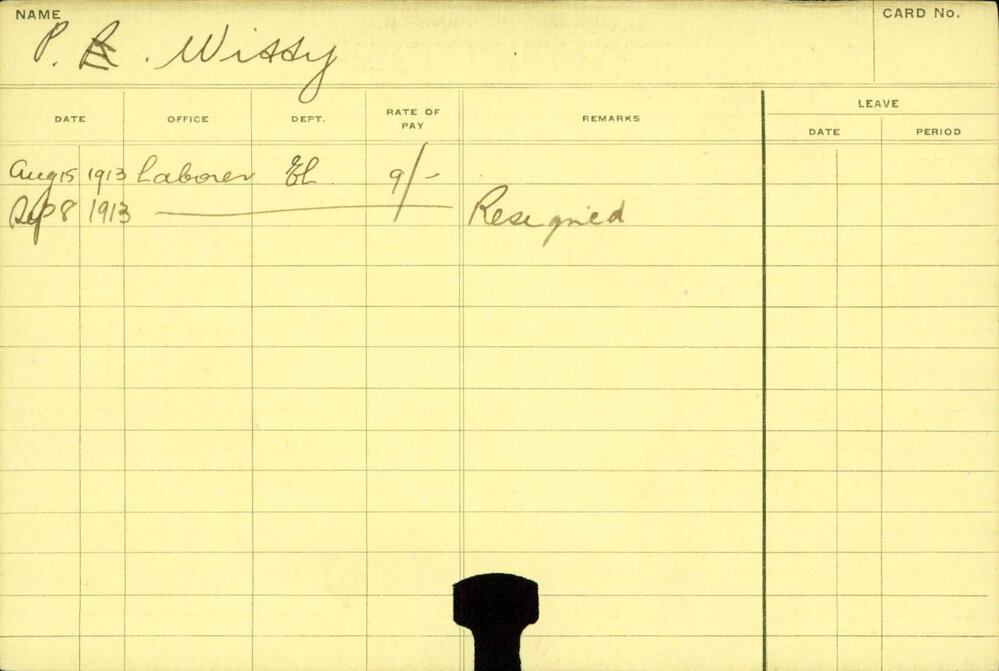 NAME
CARD No.
P. . Wissy
LEAVE
DATE OFFICE DEPT. RATE OF PAY REMARKS DATE PERIOD
Aug 15 1913 Laborer El 9/-
Sep 8 1913 Resigned